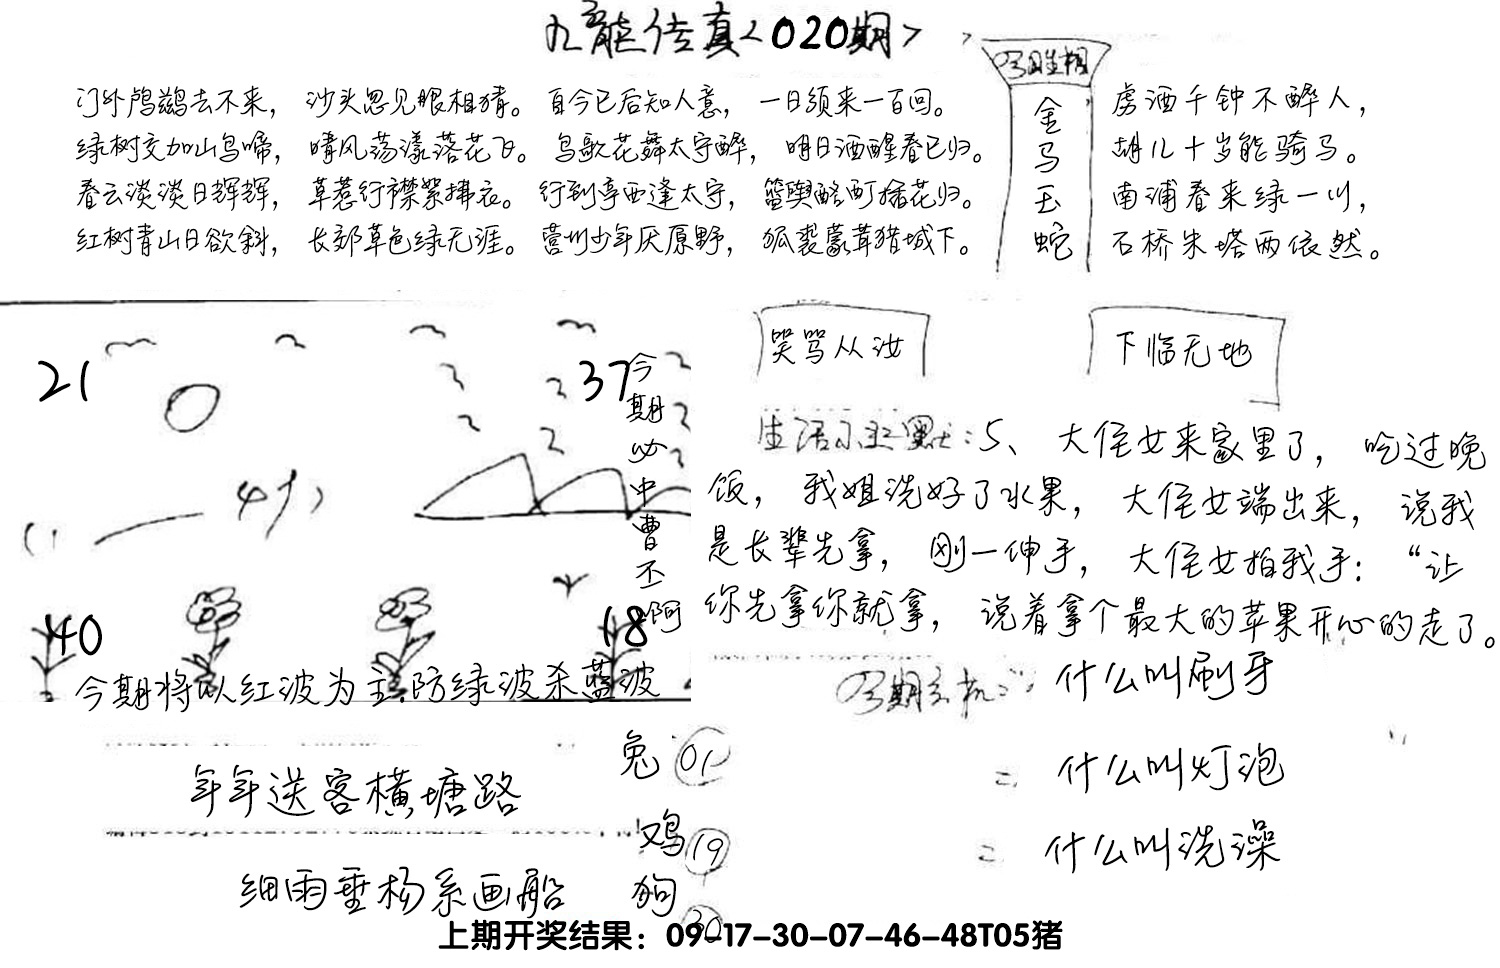 九龙传真<020期>
今日生相
门外鸬鹚去不来，沙头忽见眼相猜。自今已后知人意，一日须来一百回。
绿树交加山鸟啼，晴风荡漾落花飞。鸟歌花舞太守醉，明日酒醒春已归。
春云淡淡日辉辉，草惹行襟絮拂衣。行到亭西逢太守，篮舆酩酊插花归。
红树青山日欲斜，长郊草色绿无涯。营州少年厌原野，狐裘蒙茸猎城下。
金
马
玉
蛇
虏酒千钟不醉人，
胡儿十岁能骑马。
南浦春来绿一川，
石桥朱塔两依然。
21
37
今期必中曹丕啊
40
18
今期将以红波为主.防绿波杀蓝波
笑骂从汝
下临无地
生活幽默：5、大侄女来家里了，吃过晚
饭，我姐洗好了水果，大侄女端出来，说我
是长辈先拿，刚一伸手，大侄女拍我手：“让
你先拿你就拿，说着拿个最大的苹果开心的走了。
今期玄机：什么叫刷牙
= 什么叫灯泡
= 什么叫洗澡
年年送客横塘路
细雨垂杨系画船
兔 01
鸡 19
狗 30
上期开奖结果：09-17-30-07-46-48T05猪